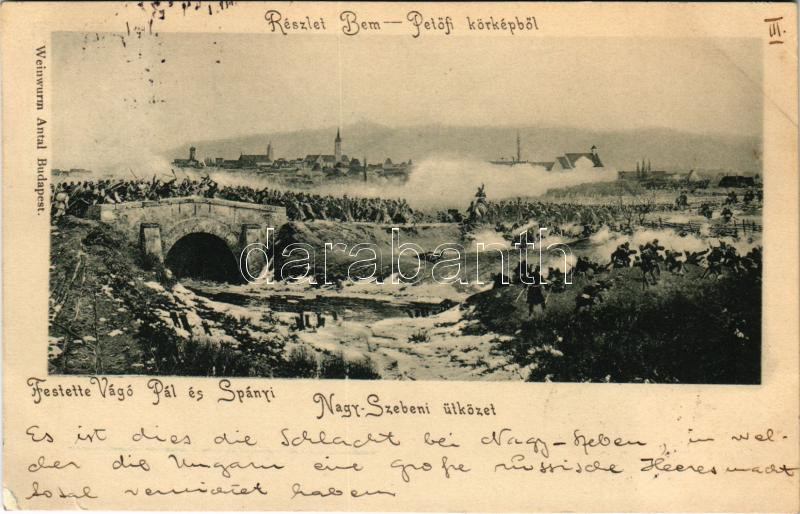 Részlet Bem-Petőfi körképből
III.
Weinwurm Antal Budapest.
darabanth.com
Festette Vágó Pál és Spányi
Nagy-Szebeni ütközet
Es ist dies die Schlacht bei Nagy-Szeben, in wel-
cher die Ungarn eine große russische Heeresmacht
total vernichtet haben